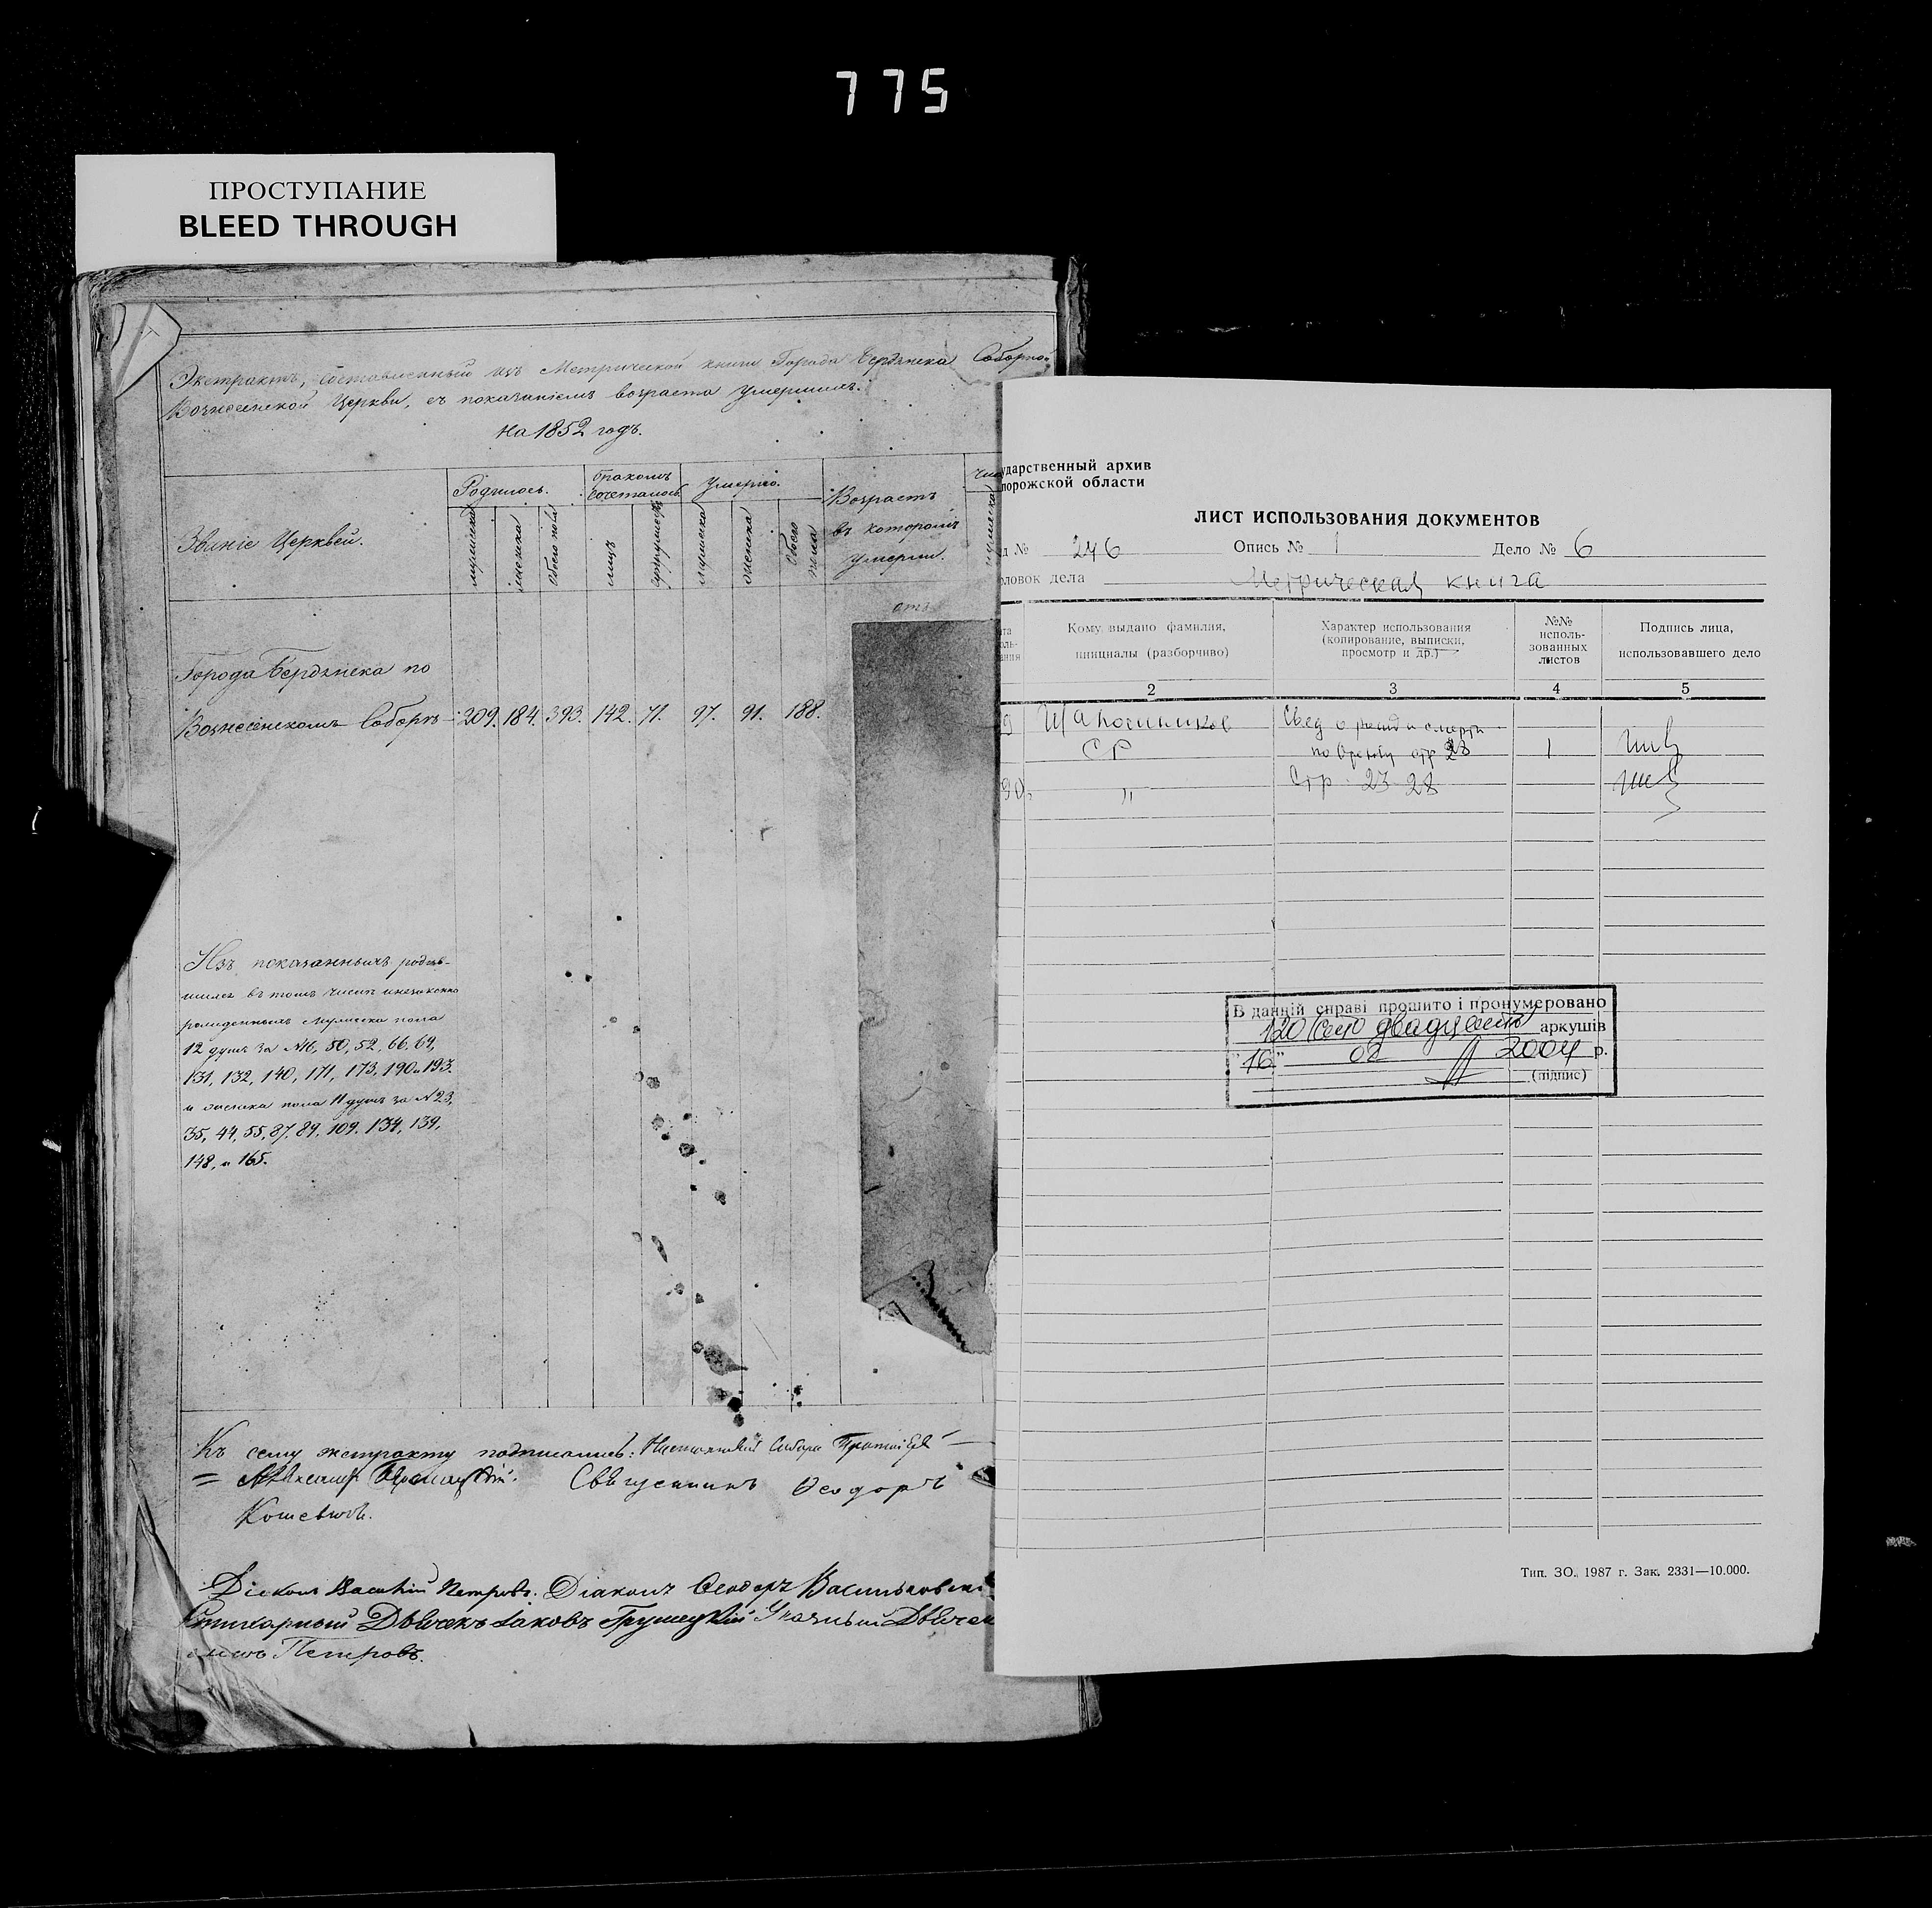 775
ПРОСТУПАНИЕ
BLEED THROUGH
Экстрактъ, составленный изъ Метрической книги Города Бердянска Соборной
Вознесенской Церкви, съ показаніемъ возраста умершихъ.
на 1852 годъ.
Званіе Церквей.
Родилось.
мужеска
женска
обоего пола
бракомъ сочеталось
лицъ
супружествъ
Умерло.
мужеска
женска
обоего пола
Возрастъ
въ которомъ
умерли.
отъ
Города Бердянска по
Вознесенскомъ Соборѣ 209. 184. 393. 142. 71. 97. 91. 188.
Изъ показанныхъ родив-
шихся въ томъ числѣ незаконно
рожденныхъ мужеска пола
12 душъ за №16, 50, 52, 66, 69,
131, 132, 140, 171, 173, 190 и 193.
и женска пола 11 душъ за №23,
35, 44, 55, 87, 89, 109, 134, 139,
148, и 165.
Къ сему экстракту подписались: Настоятель Собора Протоіерей
Священникъ Ѳеодоръ
Діаконъ Василій Петровъ. Діаконъ Ѳеодоръ
Стихарный Дьячекъ Іаковъ Грушецкій Дьячек
Петровъ.
ударственный архив
порожской области
ЛИСТ ИСПОЛЬЗОВАНИЯ ДОКУМЕНТОВ
д № 246 Опись № 1 Дело № 6
ловок дела Метрическая книга
Кому выдано фамилия,
инициалы (разборчиво)
Характер использования
(копирование, выписки,
просмотр и др.)
№№
исполь-
зованных
листов
Подпись лица,
использовавшего дело
2 3 4 5
Шапошников Свед о рожд и смерти
СР стр 28 1
90 " Стр. 27 28
В данній справі прошито і пронумеровано
120 (сто двадцять) аркушів
"16" 02 2004 р.
(підпис)
Тип. ЗО., 1987 г. Зак. 2331—10.000.